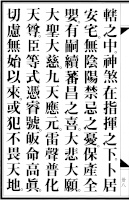 轄之中神煞在指之下卜居
安宅無陰陽禁忌之憂保產全
嬰有嗣續蕃昌之喜大悲大願
大聖大慈九天應元雷聲普化
天尊臣等式憑睿號皈命高真
切慮無始以來或犯不畏天地